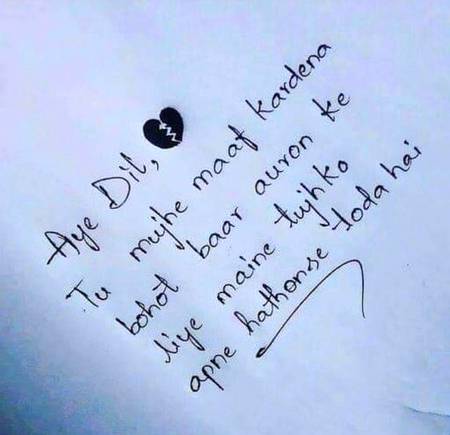 Aye Dil,
Tu mujhe maaf kardena
bohot baar auron ke
liye maine tujhko
apne hathonse toda hai